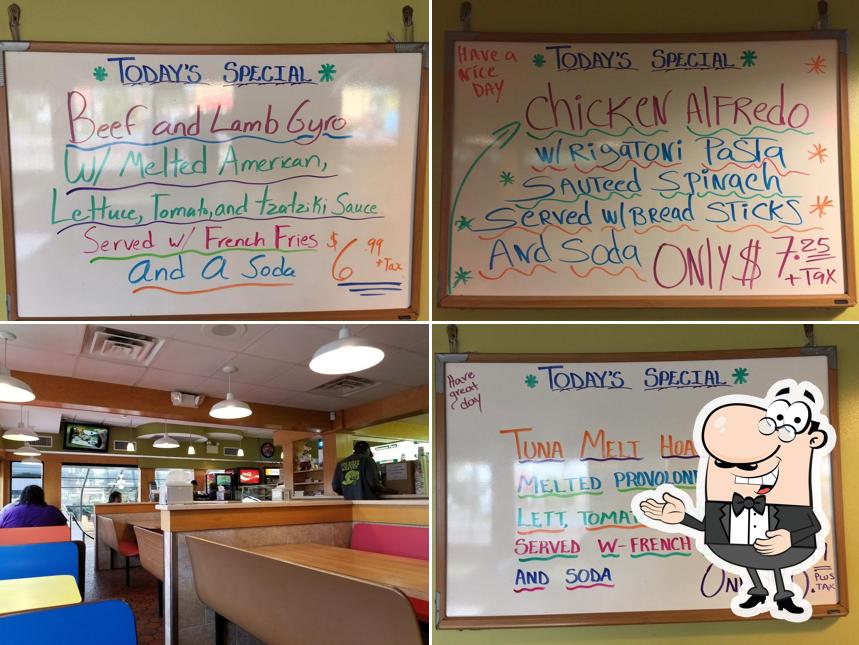 Today's Special
Beef and Lamb Gyro
W/ Melted American,
Lettuce, Tomato, and tzatziki Sauce
Served w/ French Fries
and A Soda
$6.99
+Tax
Have a
nice
DAY
Today's Special
Chicken Alfredo
w/ Rigatoni Pasta
Sauteed Spinach
Served w/ Bread Sticks
And Soda
ONLY $7.25
+Tax
Have
great
day
Today's Special
Tuna Melt
Melted
Lett,
Served w-French
and soda
Plus
Tax